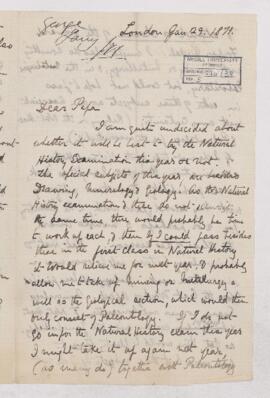 George
Parry
London Jan 29. 1871.
Dear Papa
I am quite undecided about
whether it wd. be best to try the Natural
History Examination this year or not.
the special subjects of this year are besides
Drawing, Mineralogy & Geology. As the Natural
History examination & these do not
the same time there would probably be time
to work up each, & then if I could pass besides
these in the first class in Natural History
it would relieve me for next year, & probably
allow me to take up Mining or Metallurgy as
well as the Geological section, which would then
only consist of Palaeontology. If I do not
go in for the Natural History exam this year
I might take it up again next year,
(as many do) together with Palaeontology